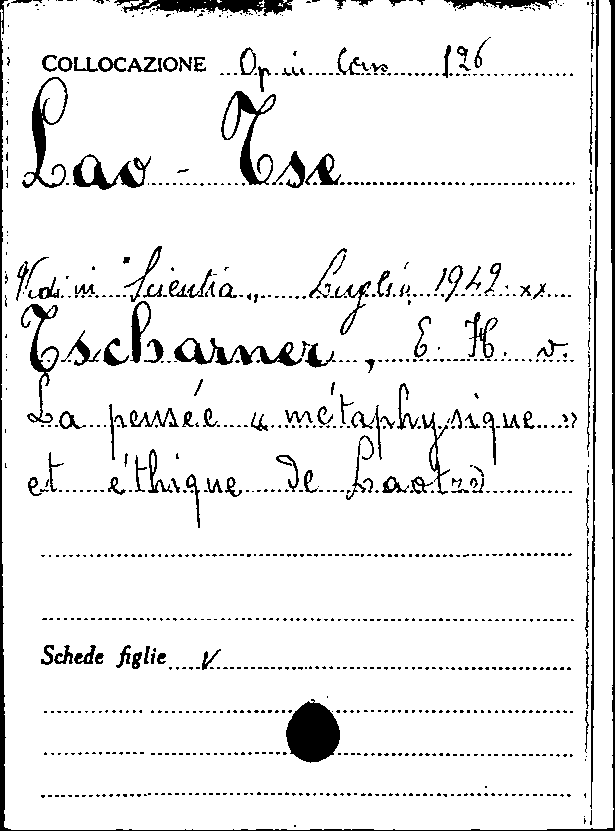 COLLOCAZIONE Op in Cons 126
Lao - Tse
Vedi in "Scientia„ Luglio 1942. xx
Tscharner, E. H. v.
La pensée « métaphysique »
et éthique de Laotzo
Schede figlie V